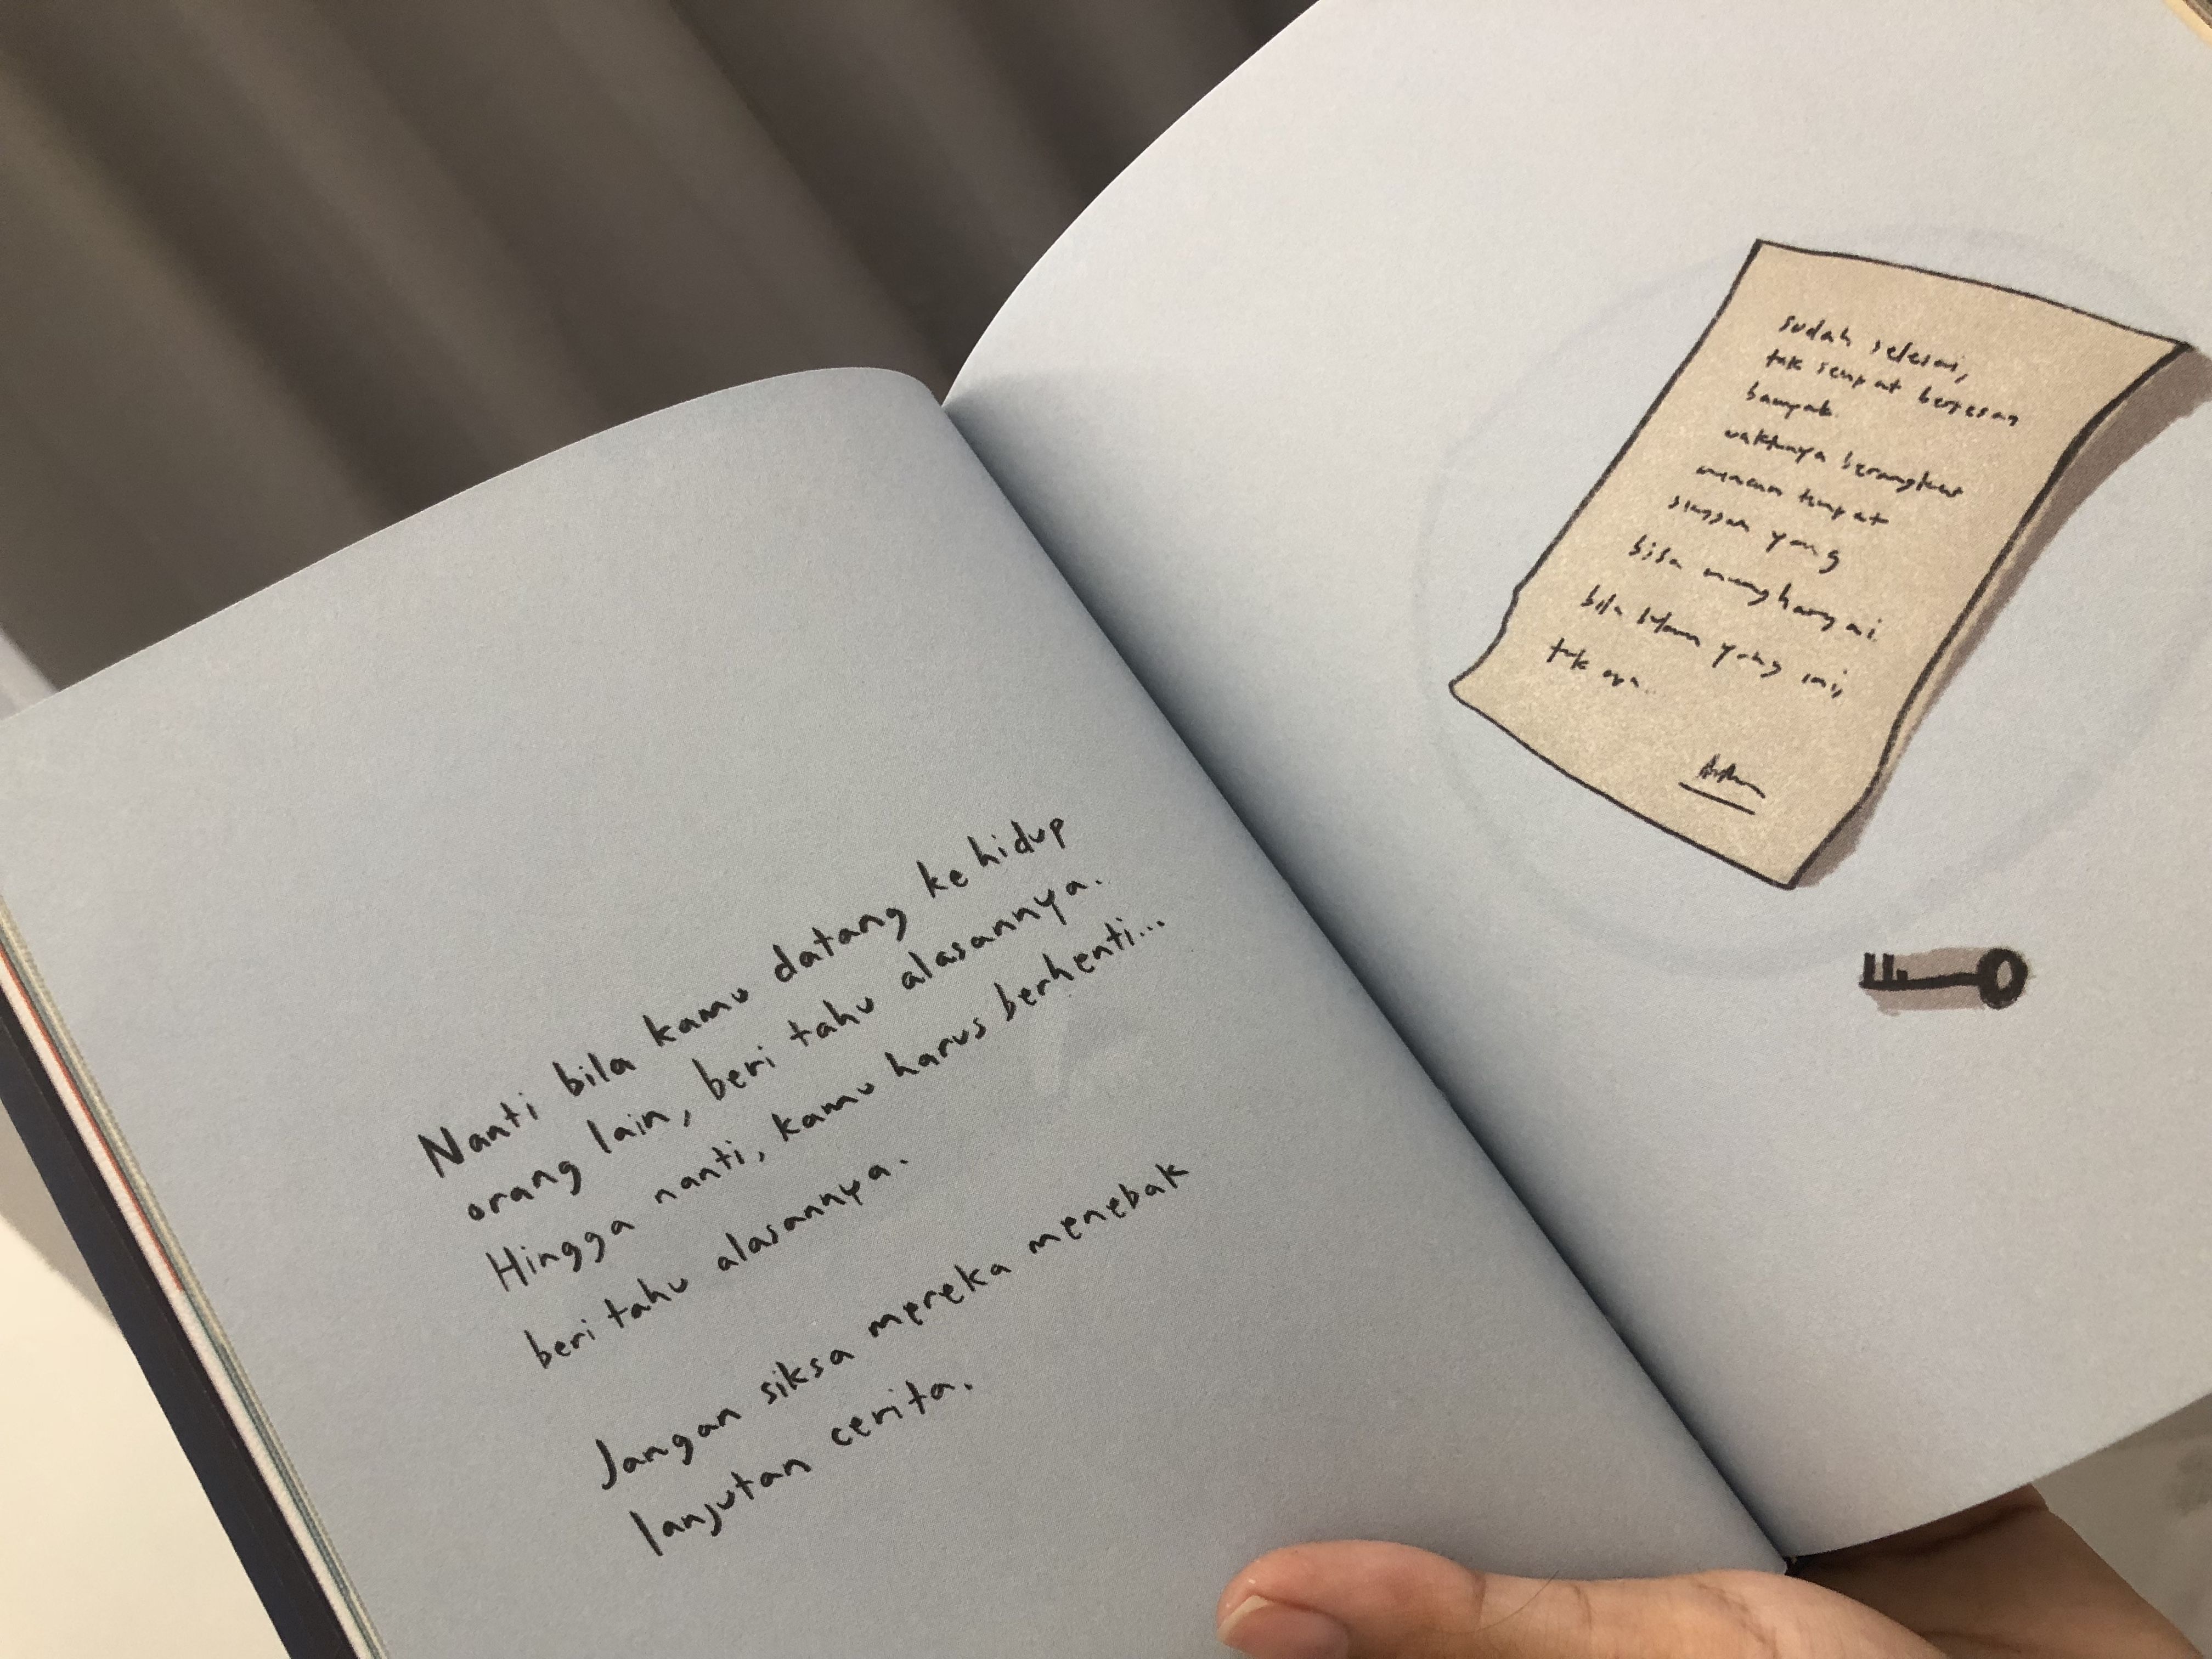 Nanti bila kamu datang ke hidup
orang lain, beri tahu alasannya.
Hingga nanti, kamu harus berhenti...
beri tahu alasannya.
Jangan siksa mereka menebak
lanjutan cerita.
sudah selesai,
tak sempat berpesan
banyak.
waktunya berangkat
mencari tempat
singgah yang
bisa menghargai.
bila bukan yang ini,
tak apa.